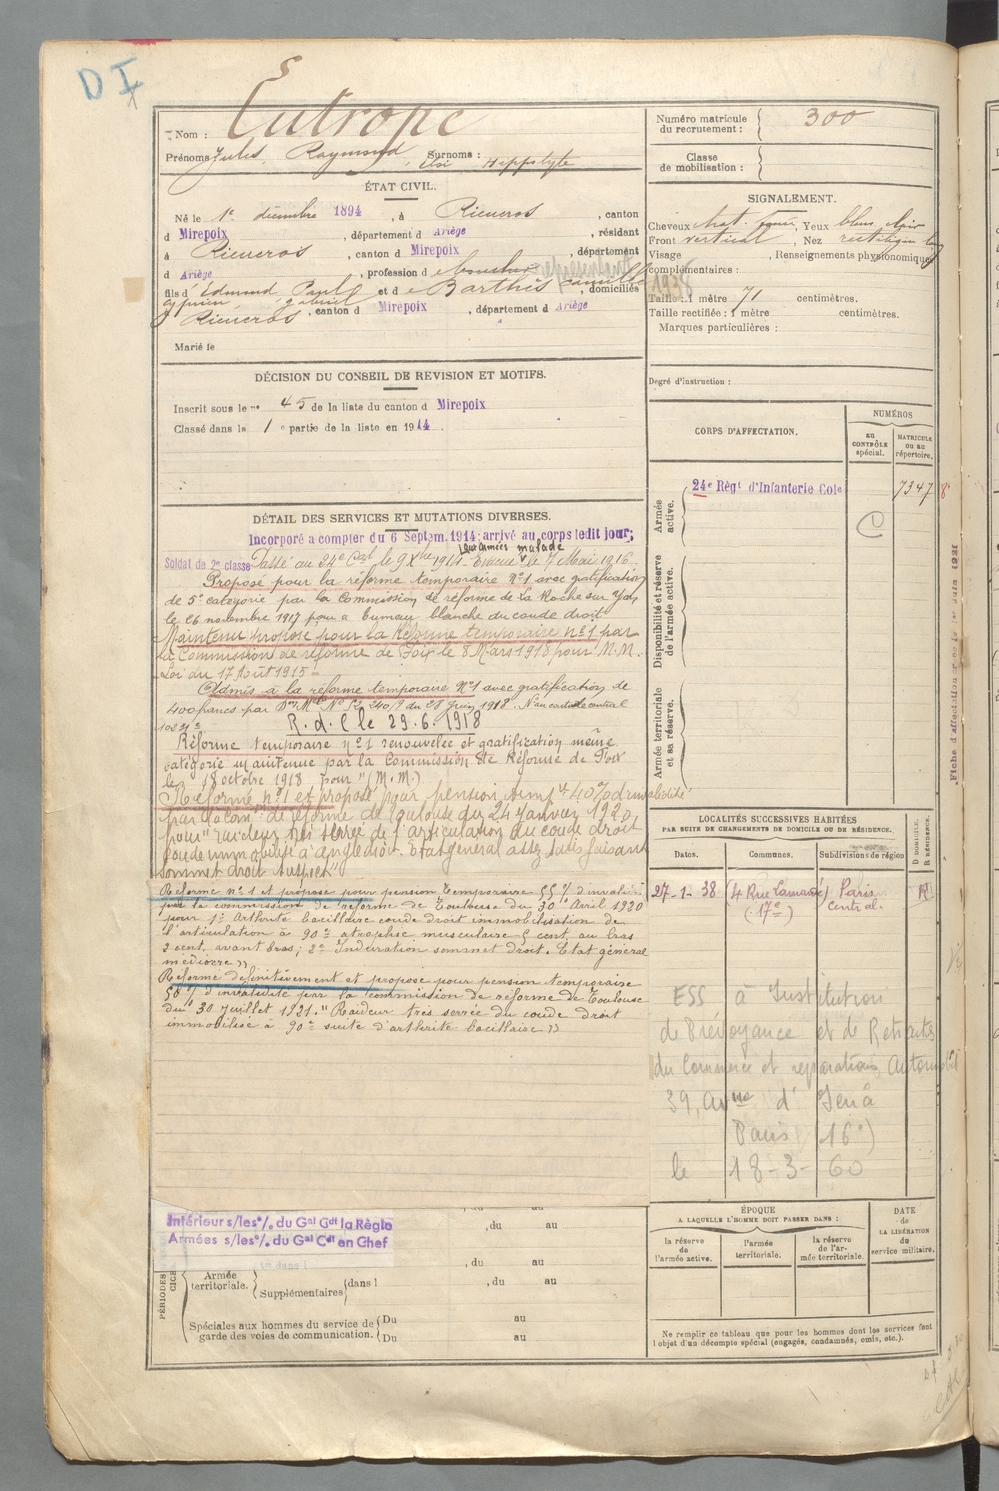 D I
Nom : Eutrope
Prénoms Jules, Raymond, Surnoms :
Eloi Hippolyte
Numéro matricule
du recrutement : 300
Classe
de mobilisation :
ÉTAT CIVIL.
Né le 1er décembre 1894, à Rieucros, canton
d Mirepoix, département d Ariège, résidant
à Rieucros, canton d Mirepoix, département
d Ariège, profession d boucher représentant
fils d'Edmond Paul et d e Barthès Camille, domiciliés
Cyprien, Gabriel
à Rieucros, canton d Mirepoix, département d Ariège
Marié le
SIGNALEMENT.
Cheveux chat. foncé, Yeux bleus clair
Front vertical, Nez rectiligne long
Visage , Renseignements physionomiques
complémentaires :
1938
Taille : 1 mètre 71 centimètres.
Taille rectifiée : 1 mètre centimètres.
Marques particulières :
Degré d'instruction :
DÉCISION DU CONSEIL DE REVISION ET MOTIFS.
Inscrit sous le n° 45 de la liste du canton d Mirepoix
Classé dans la 1e partie de la liste en 1914.
CORPS D'AFFECTATION.
NUMÉROS
AU CONTRÔLE spécial.
MATRICULE OU AU répertoire.
Armée active.
24e Régt d'Infanterie Cole
7347 8e
Disponibilité et réserve de l'armée active.
Armée territoriale et sa réserve.
Fiche d'affectation créée le 1er Juin 1921
DÉTAIL DES SERVICES ET MUTATIONS DIVERSES.
Incorporé a compter du 6 Septem. 1914; arrivé au corps ledit jour;
Soldat de 2e classe Passé au 24e Cal le 9 Xbre 1914. aux armées Evacué malade le 7 Mai 1916.
Proposé pour la réforme temporaire N°1 avec gratification
de 5e catégorie par la Commission de réforme de La Roche sur Yon
le 26 novembre 1917 pour "tumeur blanche du coude droit
Maintenu proposé pour la Réforme temporaire n°1 par
la Commission de réforme de Foix le 8 Mars 1918 pour M.M.
Loi du 17 Août 1915
Admis à la réforme temporaire N°1 avec gratification de
400 francs par Don Mlle N° du 28 Juin 1918. N° au contrôle central
R.d.C le 29.6.1918
Réforme temporaire n°1 renouvelée et gratification même
catégorie maintenue par la Commission de Réforme de Foix
le 18 octobre 1918 pour "(M.M.)
Réformé n°1 et proposé pour pension 40% d'invalidité
par la Comon de réforme de Toulouse du 24 Janvier 1920
pour "raideur très serrée de l'articulation du coude droit
coude immobilisé à angle droit. Etat général assez satisfaisant
sommet droit suspect"
Réformé n°1 et proposé pour pension temporaire 55% d'invalidité
par la commission de réforme de Toulouse du 30 Avril 1920
pour 1° Arthrite bacillaire coude droit immobilisation de
l'articulation à 90° atrophie musculaire 5 cent. au bras
2 cent. avant bras; 2° Induration sommet droit. Etat général
médiocre"
Réformé définitivement et proposé pour pension temporaire
50% d'invalidité par la commission de réforme de Toulouse
du 30 juillet 1921. "Raideur très serrée du coude droit
immobilisé à 90° suite d'arthrite bacillaire"
LOCALITÉS SUCCESSIVES HABITÉES
PAR SUITE DE CHANGEMENTS DE DOMICILE OU DE RÉSIDENCE.
Dates. Communes. Subdivisions de région D DOMICILE. R RÉSIDENCE.
27-1-38 (4 Rue Lamandé) Paris R
(17e) Central.
ESS à Institution
de Prévoyance et de Retraites
du Commerce et réparations Automobile
39, Avnue d'Iéna
Paris (16e)
le 18-3-60
Intérieur s/les °/. du Gal Gdt la Région
Armées s/les °/. du Gal Cdt en Chef
, du au
, du au
PÉRIODES
Armée territoriale.
Supplémentaires dans l , du au
Spéciales aux hommes du service de garde des voies de communication.
Du au
Du au
ÉPOQUE
A LAQUELLE L'HOMME DOIT PASSER DANS :
DATE de LA LIBÉRATION du service militaire.
la réserve de l'armée active.
l'armée territoriale.
la réserve de l'armée territoriale.
Ne remplir ce tableau que pour les hommes dont les services font
l'objet d'un décompte spécial (engagés, condamnés, omis, etc.).